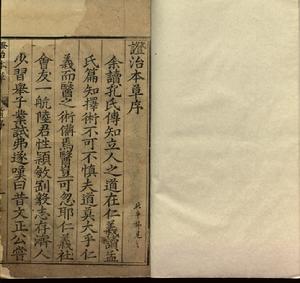 證治本草序
余讀孔氏傳知立人之道在仁義讀孟
氏篇知擇術不可不慎夫道莫大乎仁
義而醫之術備焉醫豈可忽耶仁義社
會友一航陸君性穎敏剛毅志存濟人
少習舉子業試弗遂嘆曰昔文正公嘗